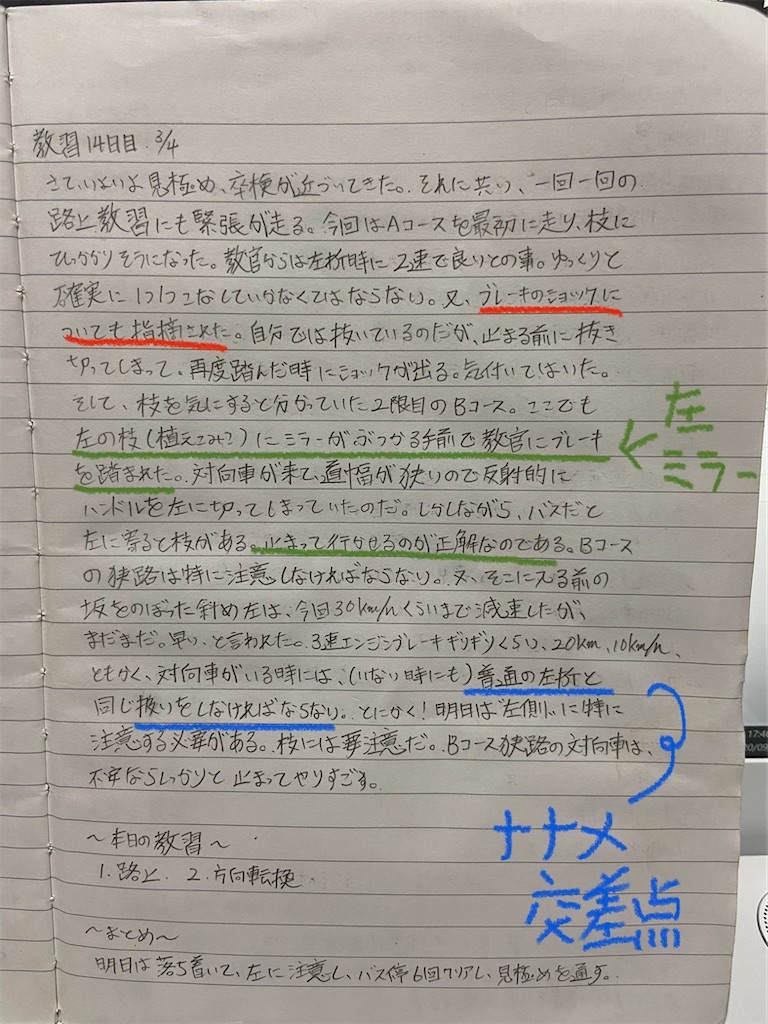 教習14日目 3/4
さていよいよ見極め、卒検が近づいてきた。それに共い、一回一回の
路上教習にも緊張が走る。今回はAコースを最初に走り、枝に
ひっかかりそうになった。教官からは左折時に2速で良いとの事。ゆっくりと
確実に1つ1つこなしていかなくてはならない。又、ブレーキのショックに
ついても指摘された。自分では抜いているのだが、止まる前に抜き
切ってしまって、再度踏んだ時にショックが出る。気付いてはいた。
そして、枝を気にすると分かっていた2限目のBコース。ここでも
左の枝(植えこみ?)にミラーがぶつかる手前で教官にブレーキ
を踏まれた。対向車が来て、道幅が狭いので反射的に
ハンドルを左に切ってしまっていたのだ。しかしながら、バスだと
左に寄ると枝がある。止まって行かせるのが正解なのである。Bコース
の狭路は特に注意しなければならない。又、そこに入る前の
坂をのぼった斜め左は、今回30km/hくらいまで減速したが、
まだまだ。早い、と言われた。3速エンジンブレーキギリギリくらい、20km、10km/h、
ともかく、対向車がいる時には、(いない時にも)普通の左折と
同じ扱いをしなければならない。とにかく!明日は"左側"に特に
注意する必要がある。枝には要注意だ。Bコース狭路の対向車は、
不安ならしっかりと止まってやりすごす。
左
ミラー
ナナメ
交差点
～本日の教習～
1.路上 2.方向転換
～まとめ～
明日は落ち着いて、左に注意し、バス停6回クリアし、見極めを通す。
17:46